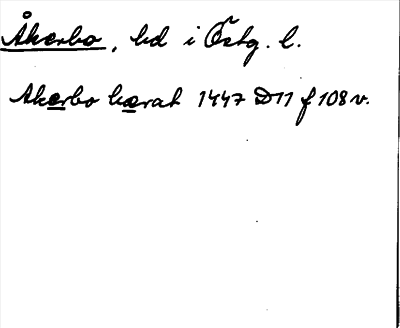 Åkerbo, hd i Östg. l.
Akerbo hærat 1447 D11 f 108 v.